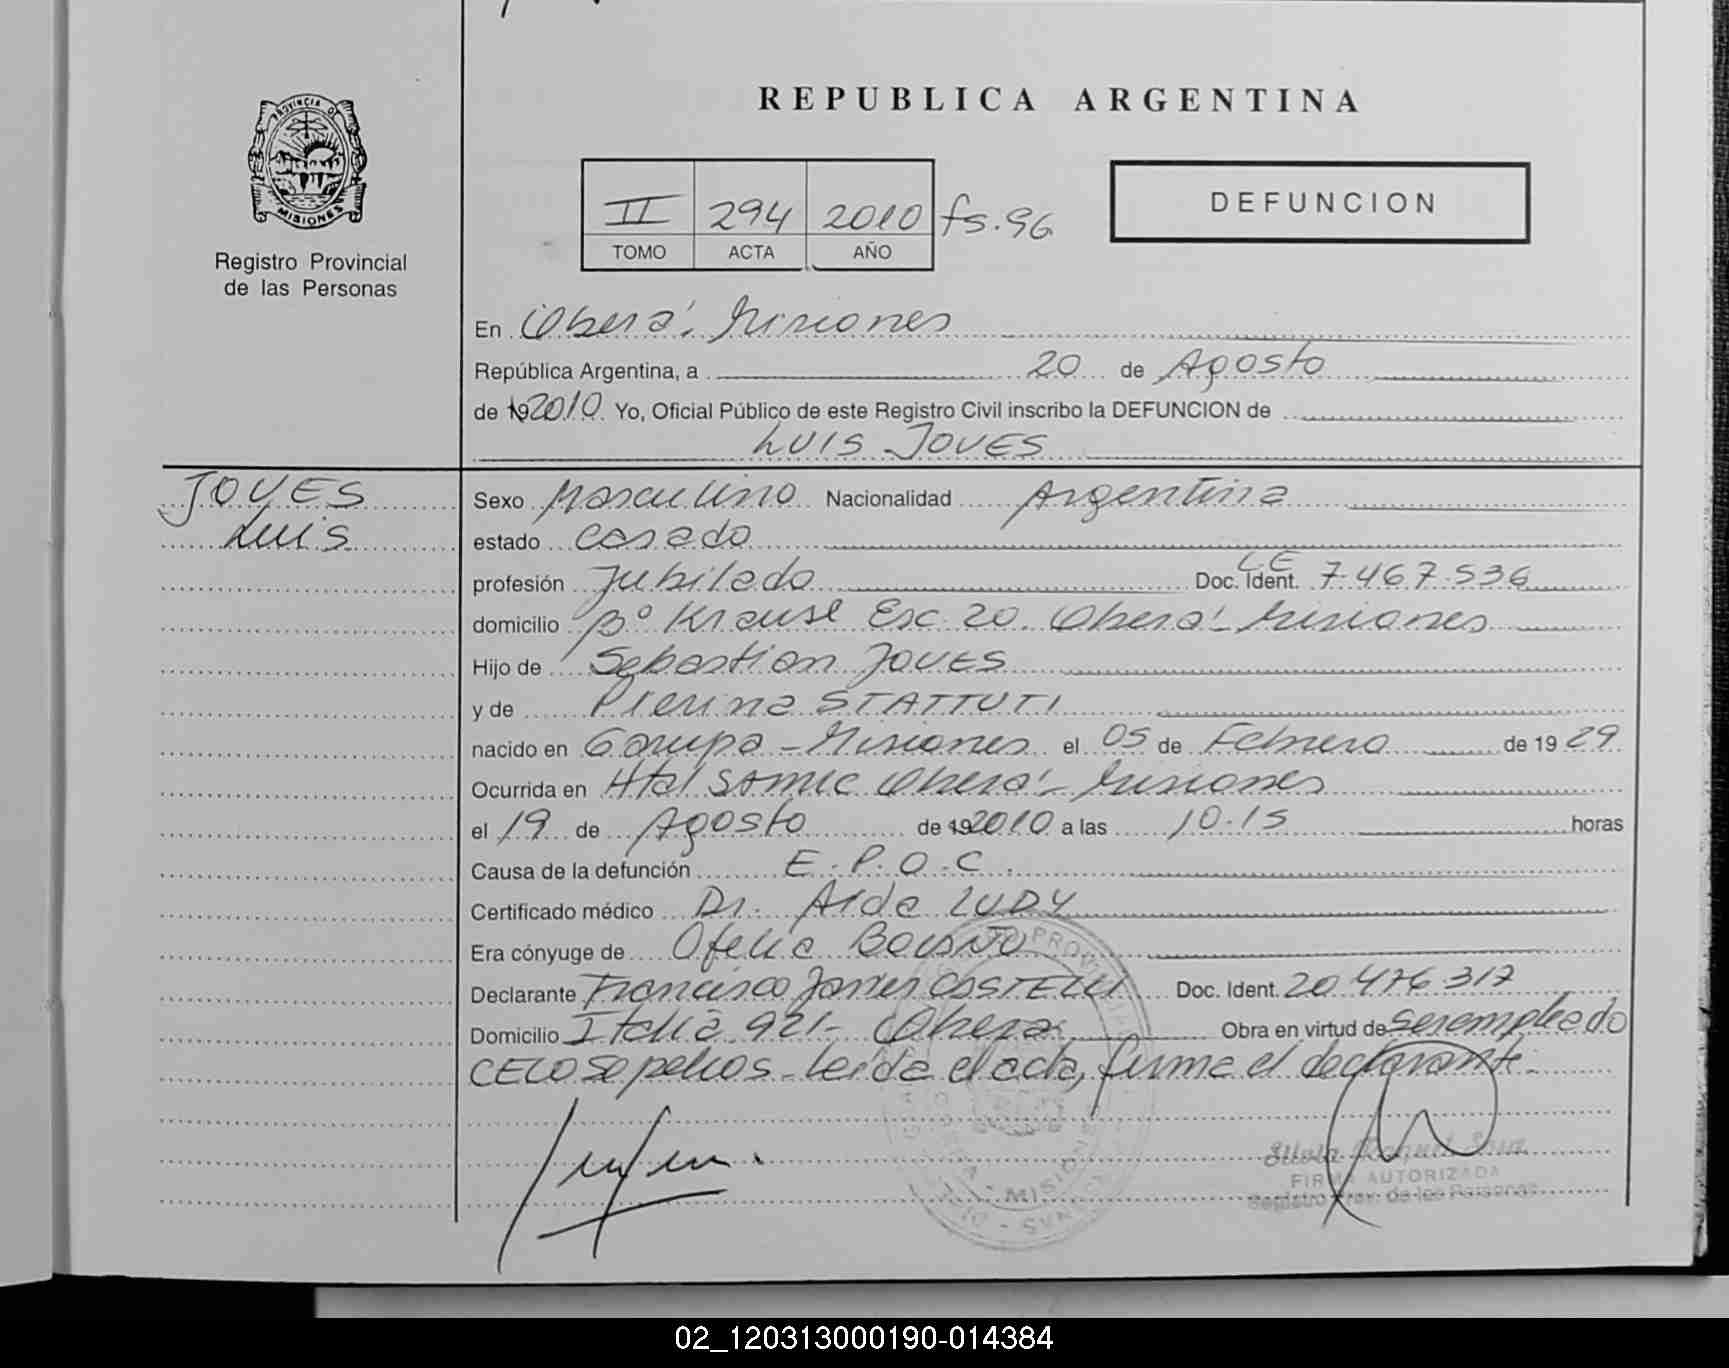 REPUBLICA ARGENTINA
PROVINCIA DE
MISIONES
Registro Provincial
de las Personas
II 294 2010 fs. 96
TOMO ACTA AÑO
DEFUNCION
En Oberá - Misiones
República Argentina, a 20 de Agosto
de 192010 Yo, Oficial Público de este Registro Civil inscribo la DEFUNCION de
LUIS JOVES
JOVES
Luis
Sexo Masculino Nacionalidad Argentina
estado casado
profesión Jubilado Doc. Ident. LE 7.467.536
domicilio Bº Krause Esc. 20. Oberá - Misiones
Hijo de Sebastian JOVES
y de Pierina STATTUTI
nacido en Garupa - Misiones el 05 de Febrero de 1929
Ocurrida en Htal SAMIC Oberá - Misiones
el 19 de Agosto de 192010 a las 10.15 horas
Causa de la defunción E.P.O.C.
Certificado médico Dr. Aida LUDY
Era cónyuge de Ofelia
Declarante Francisco Javier CASTELLI Doc. Ident. 20.476.317
Domicilio Italia 921 - Oberá Obra en virtud de ser empleado
CELO Sepelios - Leida el acta, firma el declarante -
FIRMA AUTORIZADA
Registro Prov. de las Personas
02_120313000190-014384